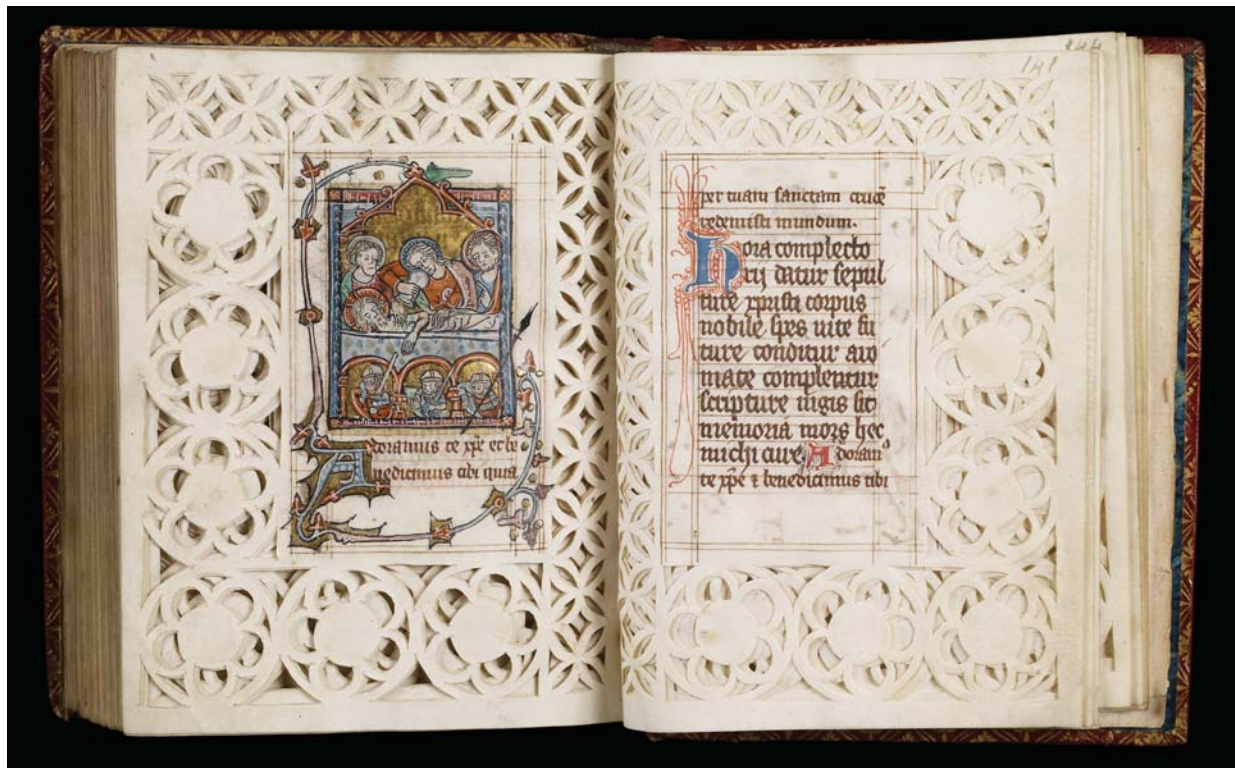 Adoramus te xp̄e et be
nedicimus tibi quia
144
141
per tuam sanctam crucē
redemisti mundum.
Hora complecto
rij datur sepul
ture xpristi corpus
nobile spes uite fu
ture conditur aro
mate complentur
scripture iugis sit
memoria mors hec
michi cure. Adoramꝰ
te xp̄e ⁊ benedicimus tibi